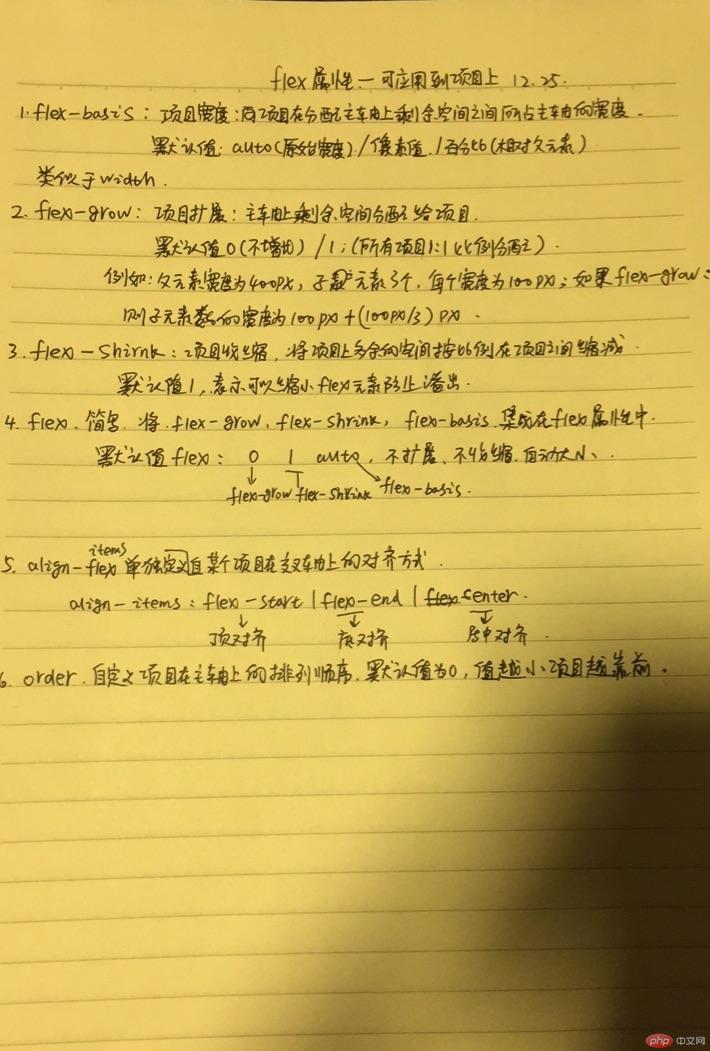 flex属性一可应用到项目上 12.25.
1. flex-basis：项目宽度：项目在分配主轴上剩余空间之间所占主轴的宽度.
默认值：auto(原始宽度)./像素值/百分比(相对父元素)
类似于width.
2. flex-grow：项目扩展：主轴上剩余空间分配给项目.
默认值0(不增加)/1；(所有项目1:1比例分配).
例如：父元素宽度为400px，子元素3个，每个宽度为100px；如果flex-grow：
则子元素的宽度为100px+(100px/3)px.
3. flex-shirnk：项目收缩，将项目上多余的空间按比例在项目之间缩减.
默认值1，表示可以缩小flex元素防止溢出.
4. flex. 简写. 将.flex-grow，flex-shrink，flex-basis.集成在flex属性中.
默认值flex： 0 1 auto，不扩展、不收缩.自动大小、
flex-grow flex-shrink flex-basis.
items
5. align-flex 单独定义自某个项目在交叉轴上的对齐方式.
align-items：flex-start | flex-end | center.
顶对齐 底对齐 居中对齐.
6. order. 自定义项目在主轴上的排列顺序.默认值为0，值越小项目越靠前.
php 中文网